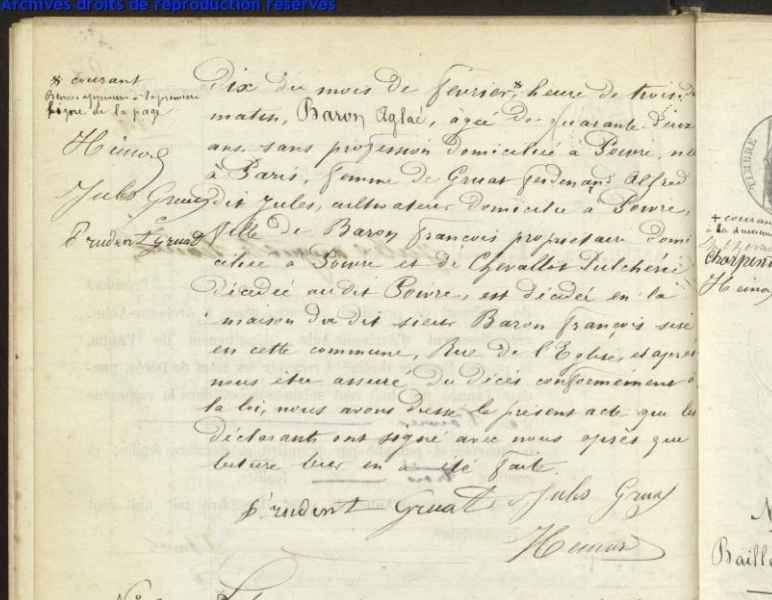 Archives droits de reproduction réservés
* courant
Renvoi approuvé à la première
ligne de la page
Jules Gruat
Prudent Gruat
Dix du mois de février,* heure de trois du
matin, Baron Aglaé, âgée de quarante deux
ans sans profession domiciliée à Poivre, née
à Paris, femme de Gruat Ferdinand Alfred
dit Jules, cultivateur domicilié à Poivre,
fille de Baron François propriétaire domi
ciliée à Poivre et de Chevallot Pulchérie
décédée audit Poivre, est décédée en la
maison du dit sieur Baron François sise
en cette commune, Rue de l'Eglise, et après
nous être assuré du décès conformément à
la loi, nous avons dressé le présent acte que les
déclarants ont signé avec nous après que
lecture leur en a été faite.
Prudent Gruat Jules Gruat
+ courant
Charpent
TIMBRE
Baill